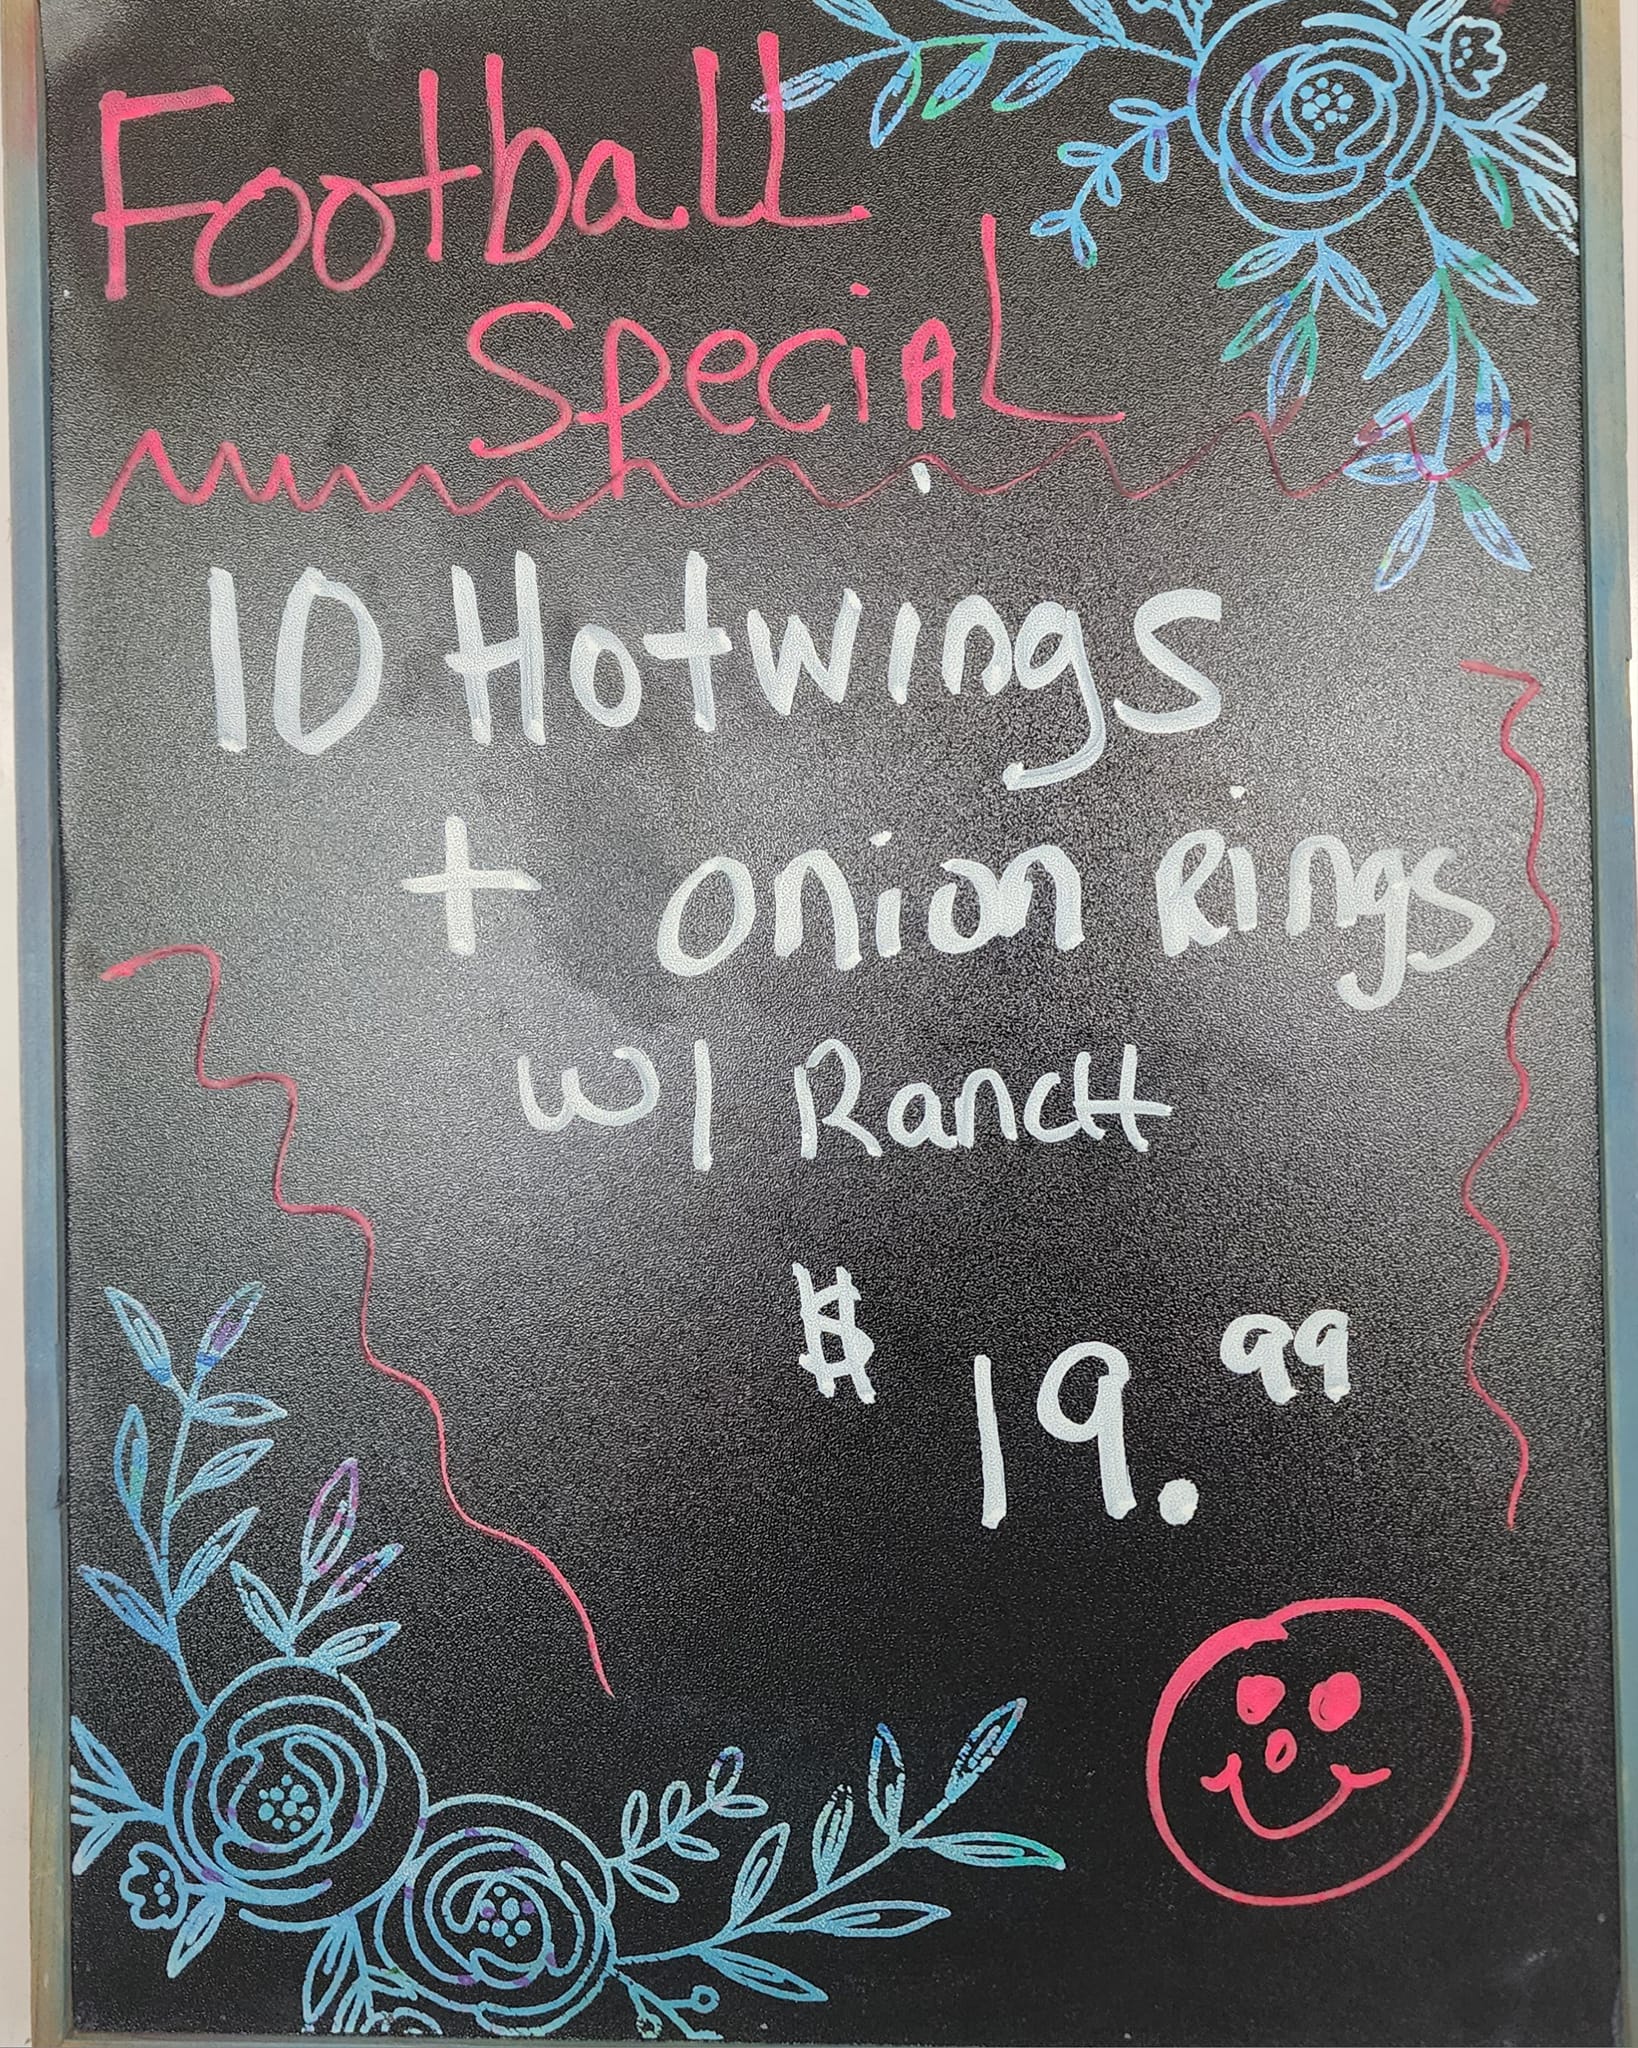 Football
Special
10 Hotwings
+ Onion Rings
w/ Ranch
$ 19.99